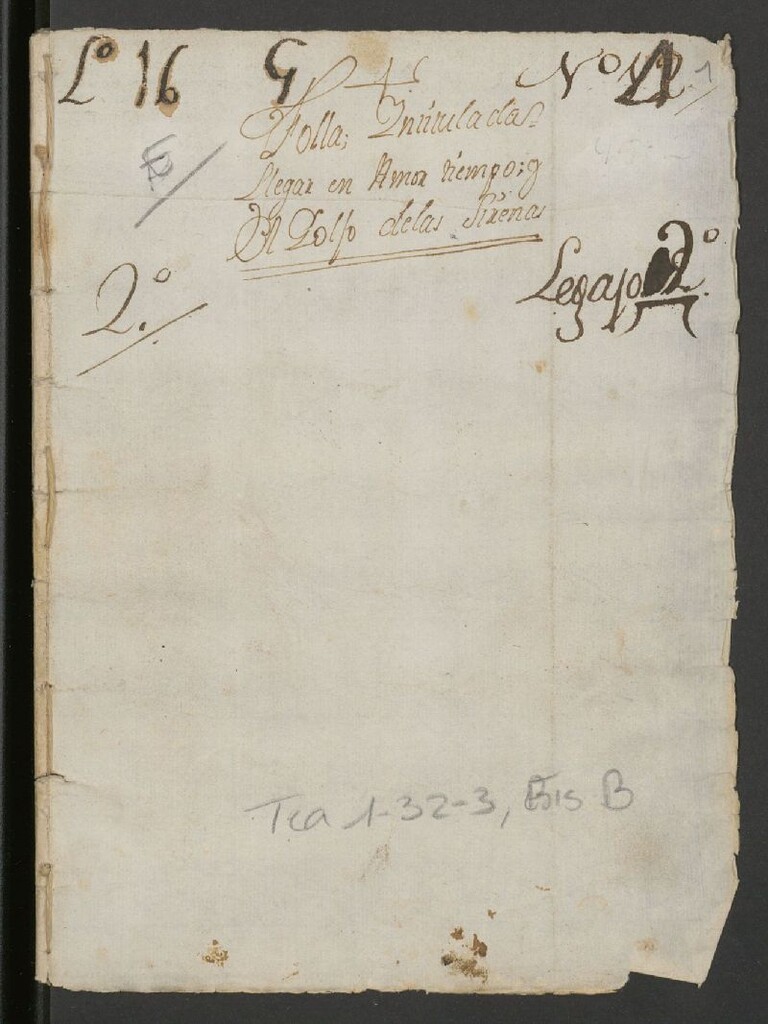 Lº 16 G Nº
1
Folla; Yntituladas
Llegar en Amor tiempo; y
El Golfo delas Sirenas
2º
Legajo 2º
Tea 1-32-3, Bis B